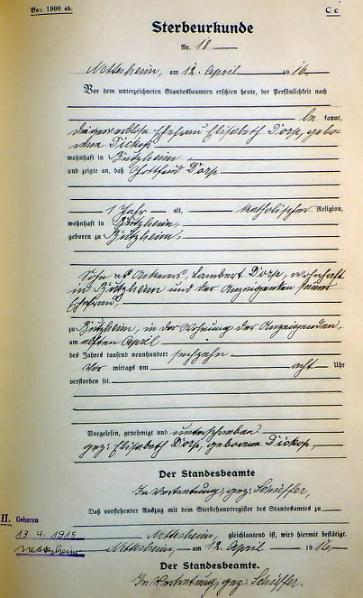 Vor 1900 ab.
C c
Sterbeurkunde
Nr. 18
Nettersheim, am 12. April 1916
Vor dem unterzeichneten Standesbeamten erschien heute, der Persönlichkeit nach
be kannt,
die gewerblose Ehefrau Elisabeth Dorp, gebo-
rene Dickop
wohnhaft in
und zeigte an, daß Gottfried Dorp
1 Jahr alt, katholischer Religion,
wohnhaft in
geboren zu
Sohn des Ackerers, Lambert Dorp, wohnhaft
in und der Anzeigenden seiner
Ehefrau,
zu in der Wohnung der Anzeigenden,
am elften April
des Jahres tausend neunhundert sechzehn
Vor mittags um acht Uhr
verstorben sei.
Vorgelesen, genehmigt und unterschrieben
gez: Elisabeth Dorp, geborene Dickop,
Der Standesbeamte
In Vertretung, gez:
Daß vorstehender Auszug mit dem Sterbehauptregister des Standesamtes zu
Nettersheim, gleichlautend ist, wird hiermit bestätigt.
II. Geboren
13.4.1915
Nettersheim, am 12. April 1916.
Der Standesbeamte.
In Vertretung, gez: